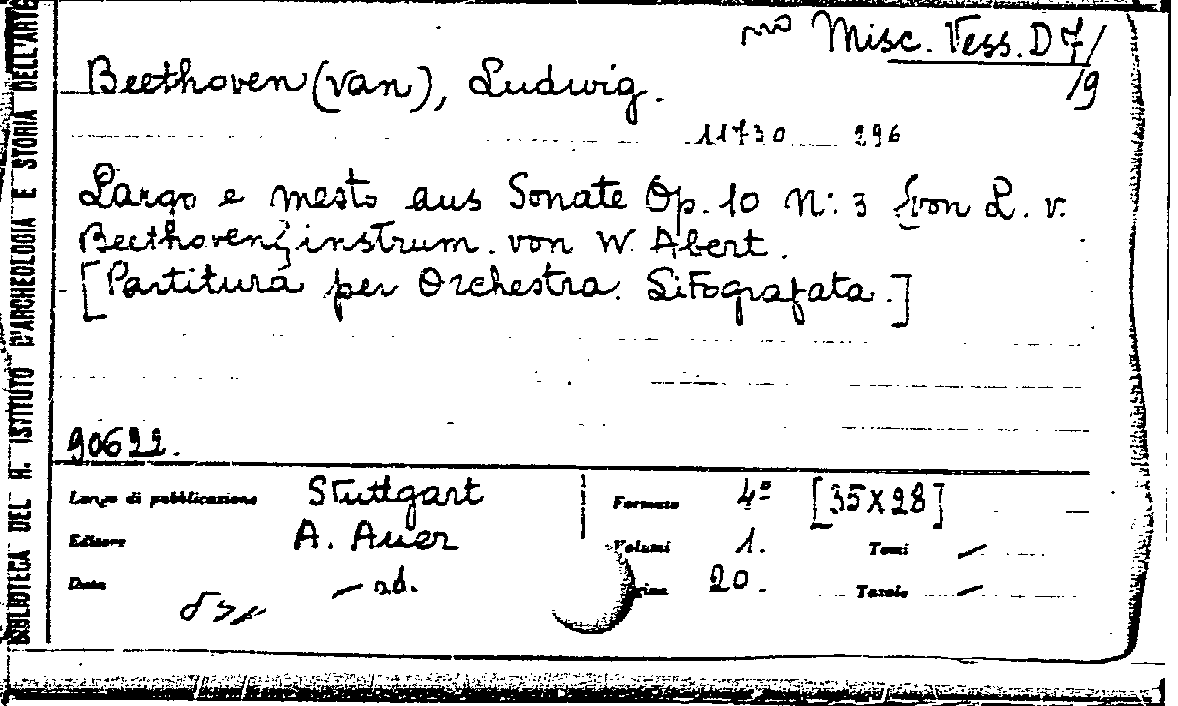 BIBLIOTECA DEL R. ISTITUTO D'ARCHEOLOGIA E STORIA DELL'ARTE
Misc. Vess. D 7/
19
Beethoven (van), Ludwig.
11730 296
Largo e mesto aus Sonate Op. 10 N: 3 [von L. v.
Beethoven] instrum. von W. Abert.
[Partitura per Orchestra. Litografata.]
90622.
Luogo di pubblicazione Stuttgart
Formato 4º [35X28]
Editore A. Auer
Volumi 1. Tomi —
Data — s.d.
Pagine 20. Tavole —